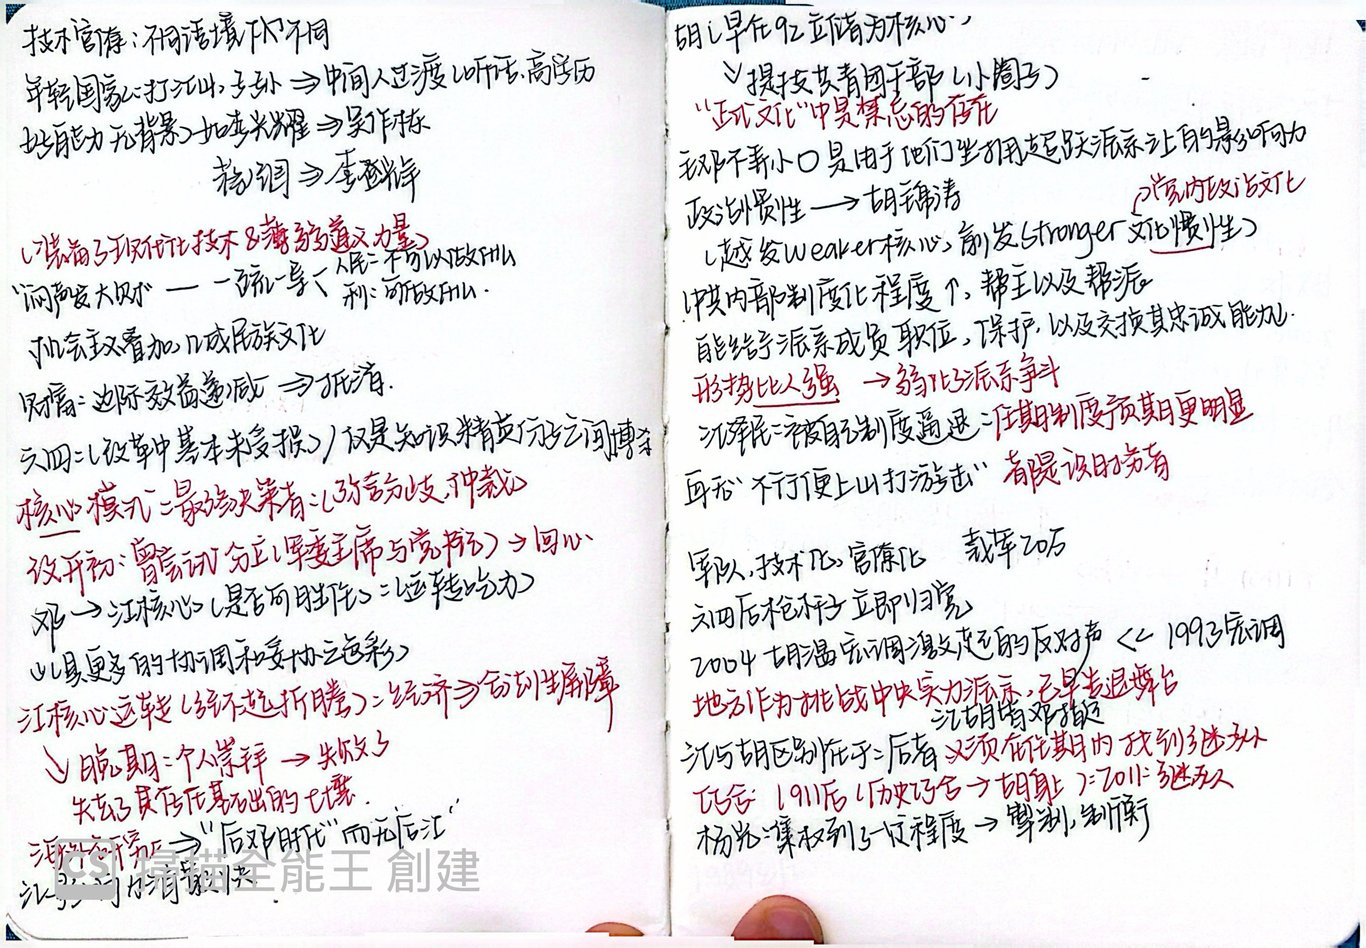 技术官僚：不同语境下的不同
年轻国家（打江山，子孙 ⇒ 中间人过渡（听话、高学历
始能力 无背景）如李光耀 ⇒ 吴作栋
蒋经国 ⇒ 李登辉
（装备了现代化技术&薄弱道义力量）
“闷声发大财” — 一统一导〈 人民：不可以放开山
利：可放开山．
机会主义叠加，几成民族文化
财富：边际效益递减 ⇒ 抵消．
六四：（改革中基本未受损）/仅是知识精英 之间博杀
核心模式：最终决策者：（弥合分歧，仲裁）
改开初：曾尝试分立（军委主席与党书记）→ 回心
邓 → 江核心（是否可胜任）：（运转吃力）
（具更多的协调和妥协之色彩）
江核心运转（经不起折腾）：经济⇒合法性屏障
↘ 晚期：个人崇拜 → 失效了
失去了其存在基础的土壤．
⇒ “后邓时代” 而无后江”
江影响力消散快
胡（早在92立储为核心．
↘ 提拔共青团干部（小圈子）
“正式文化”中是禁忌的存在
毛邓不弄小〇是由于他们坐拥超越派系之上的影响力
政治惯性 → 胡锦涛 党内政治文化
（越发weaker核心，愈发stronger文化惯性）
中共内部制度化程度↑，帮主以及帮派
能给予派系成员职位，保护，以及交换其忠诚能力．
形势比人强 → 弱化了派系争斗
江泽民：被自己制度逼退：任期制度预期更明显
再无“不行便上山打游击” 者
军队，技术化，官僚化 裁军20万
六四后枪杆子立即归党
2004胡温宏调激起的反对声 << 1993宏调
地方作为挑战中央实力派系，已早告退舞台
江胡皆邓指定
江与胡区别在于：后者必须在任期内找到继承人
巧合：1911后（历史巧合→胡身上）：2011：继承人
杨光：集权到了一定程度→掣制，制衡
掃描全能王 創建